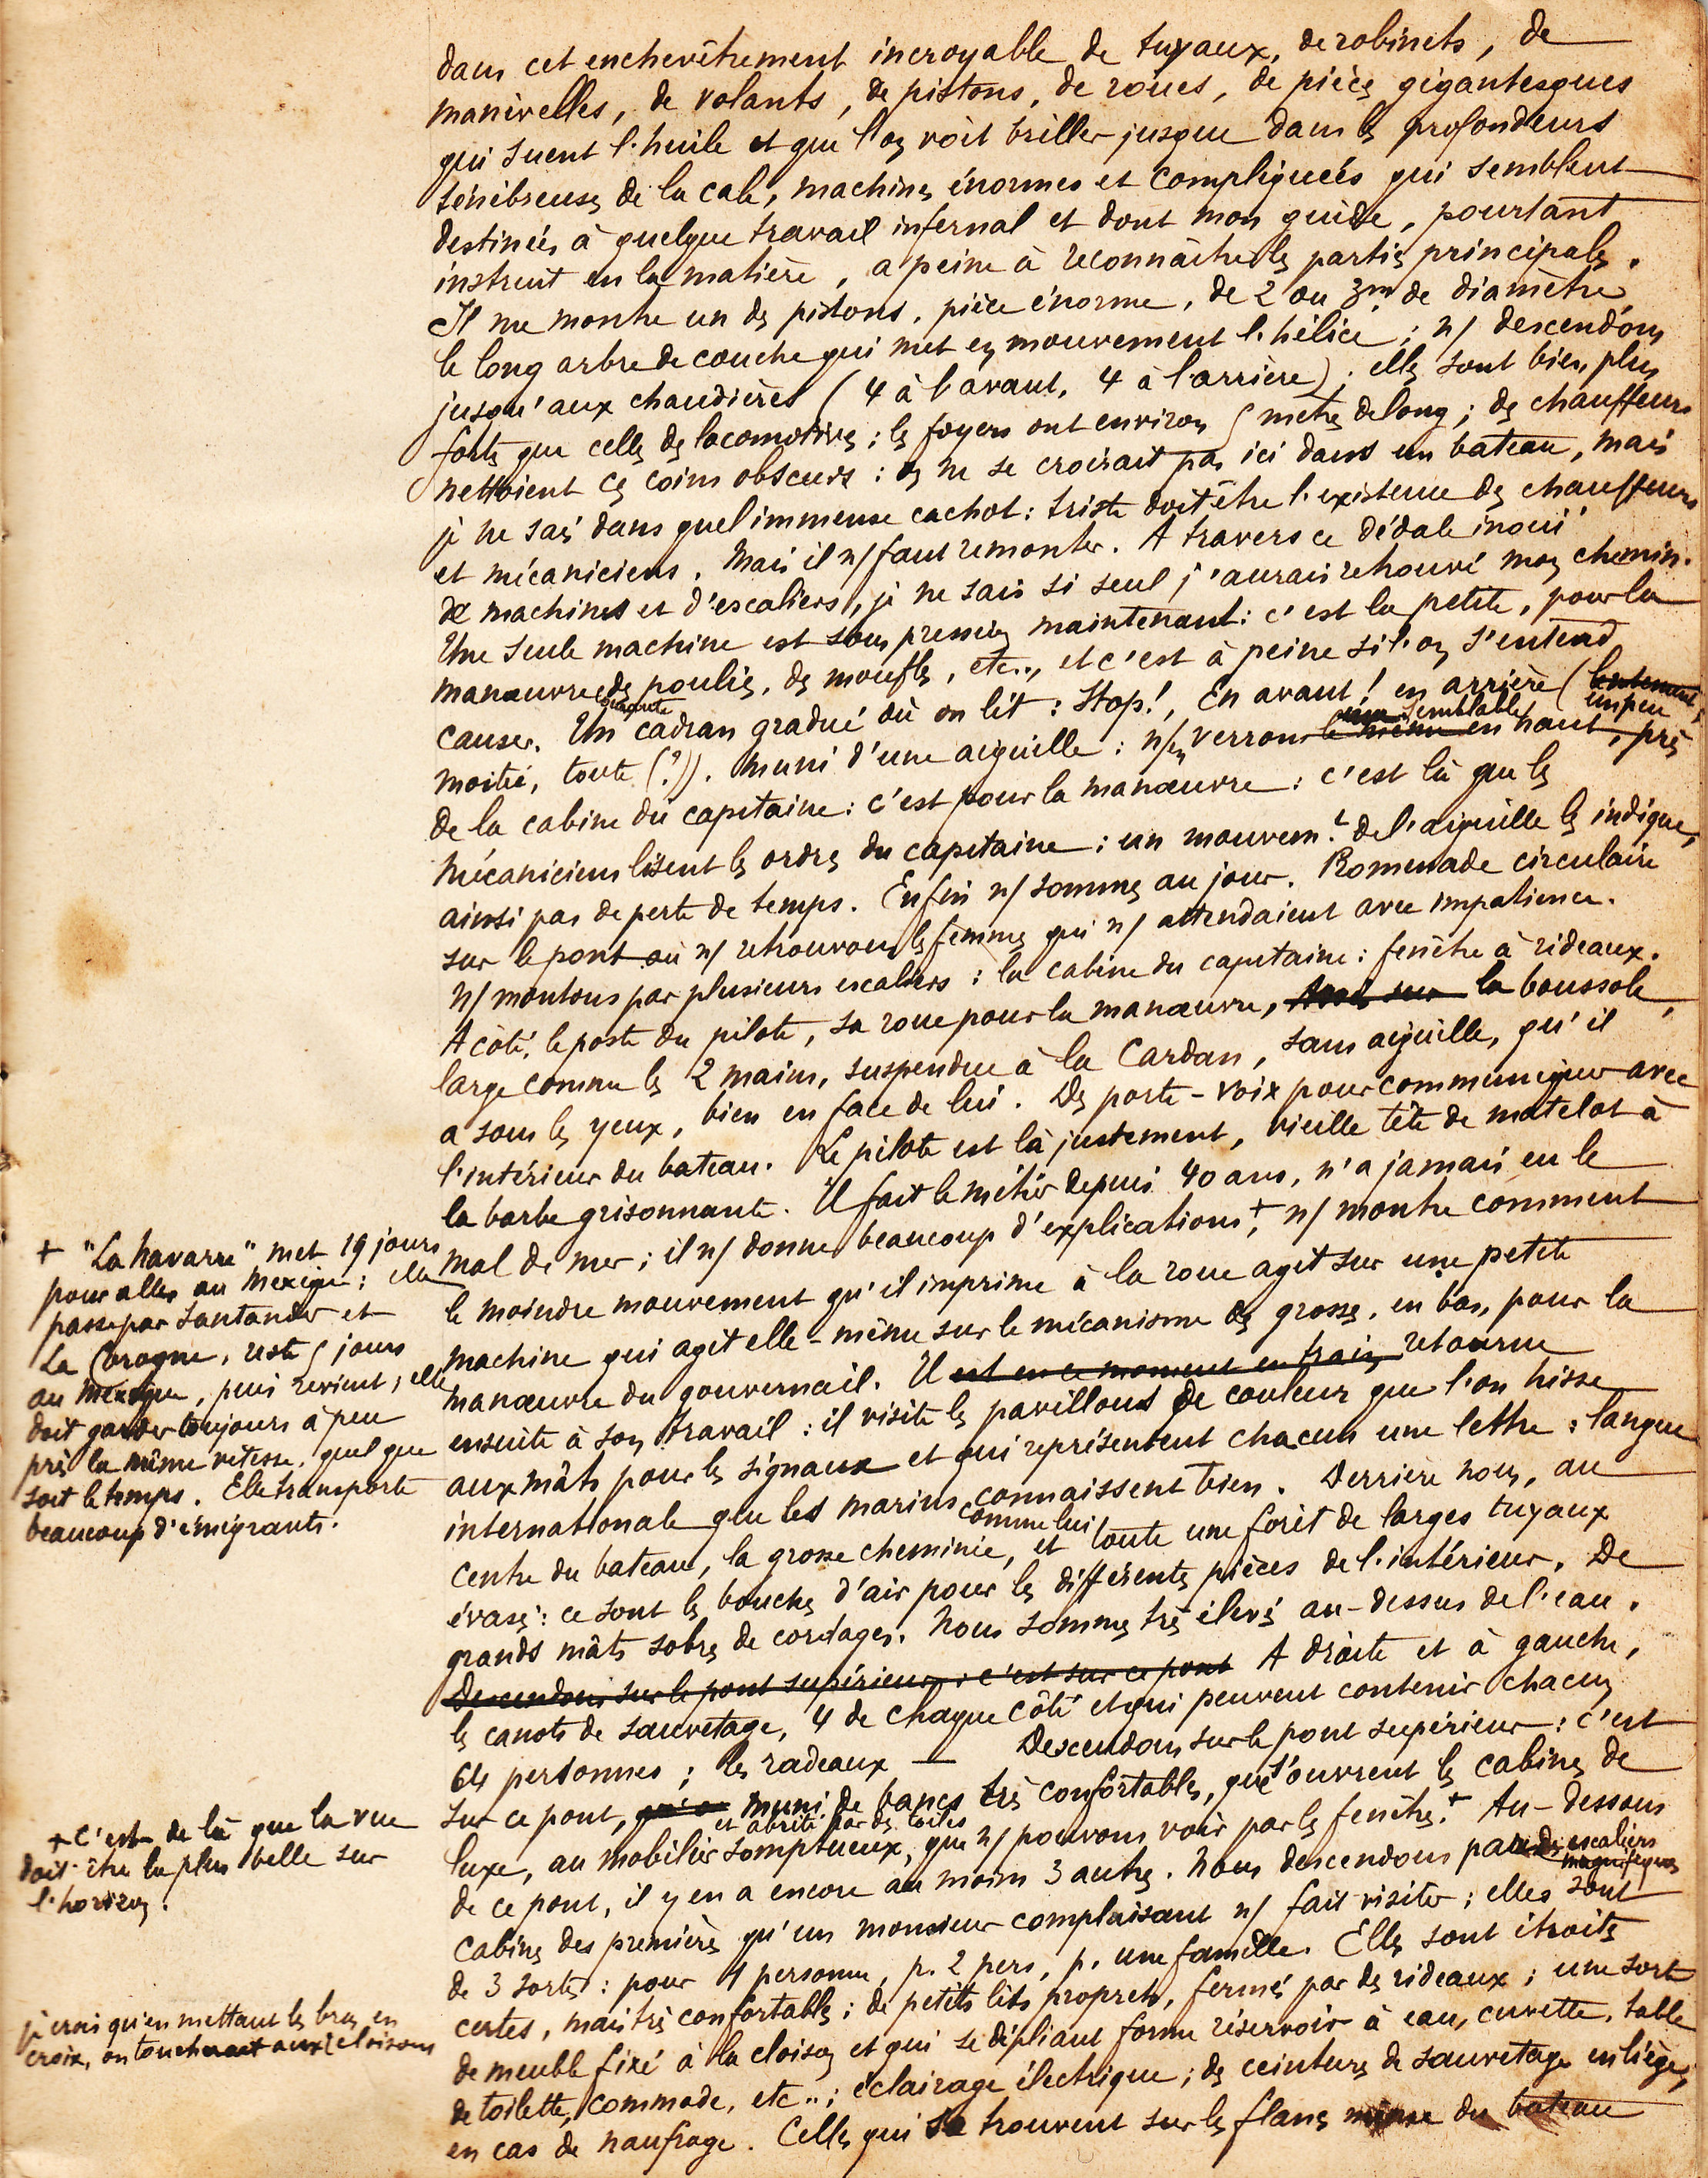 dans cet enchevêtrement incroyable de tuyaux, de robinets, de
manivelles, de volants, de pistons, de roues, de pièces gigantesques
qui suent l'huile et que l'on voit briller jusque dans les profondeurs
ténébreuses de la cale, machines énormes et compliquées qui semblent
destinées à quelque travail infernal et dont mon guide, pourtant
instruit en la matière, a peine à reconnaître les parties principales.
Il me montre un des pistons, pièce énorme, de 2 ou 3m de diamètre,
le long arbre de couche qui met en mouvement l'hélice ; n/ descendons
jusqu'aux chaudières (4 à l'avant, 4 à l'arrière) ; elles sont bien plus
fortes que celles des locomotives ; les foyers ont environ 5 mètres de long ; des chauffeurs
nettoient ces coins obscurs : on ne se croirait pas ici dans un bateau, mais
je ne sais dans quel immense cachot : triste doit être l'existence des chauffeurs
et mécaniciens. Mais il n/ faut remonter. A travers ce dédale inouï
de machines et d'escaliers, je ne sais si seul j'aurais retrouvé mon chemin.
Une seule machine est sous pression maintenant : c'est la petite, pour la
manœuvre des poulies, des moufles, etc.., et c'est à peine si l'on s'entend
causer. Un cadran gradué où on lit : Stop!, En avant! en arrière (lentement,
un peu
moitié, toute (?)). muni d'une aiguille : n/ en verrons le même en haut, près
un semblable
de la cabine du capitaine : c'est pour la manœuvre : c'est là que les
mécaniciens lisent les ordres du capitaine ; un mouvem.t de l'aiguille les indique,
ainsi pas de perte de temps. Enfin n/ sommes au jour. Promenade circulaire
sur le pont où n/ retrouvons les femmes qui n/ attendaient avec impatience.
n/ montons par plusieurs escaliers : la cabine du capitaine : fenêtre à rideaux.
A côté, le poste du pilote, sa roue pour la manœuvre, la boussole,
large comme les 2 mains, suspendue à la Cardan, sans aiguille, qu'il
a sous les yeux, bien en face de lui. Des porte-voix pour communiquer avec
l'intérieur du bateau. Le pilote est là justement, vieille tête de matelot à
la barbe grisonnante. Il fait le métier depuis 40 ans, n'a jamais eu le
mal de mer ; il n/ donne beaucoup d'explications +, n/ montre comment
le moindre mouvement qu'il imprime à la roue agit sur une petite
machine qui agit elle-même sur le mécanisme des grosses, en bas, pour la
manœuvre du gouvernail. Il est en ce moment en train retourne
ensuite à son travail : il visite les pavillons de couleur que l'on hisse
aux mâts pour les signaux et qui représentent chacun une lettre : langue
internationale que les marins connaissent bien. Derrière nous, au
comme lui
centre du bateau, la grosse cheminée, et toute une forêt de larges tuyaux
évasés : ce sont les bouches d'air pour les différentes pièces de l'intérieur. De
grands mâts sobres de cordages. Nous sommes très élevés au-dessus de l'eau.
Descendons sur le pont supérieur : c'est sur ce pont A droite et à gauche,
les canots de sauvetage, 4 de chaque côté et qui peuvent contenir chacun
64 personnes ; les radeaux — Descendons sur le pont supérieur : c'est
sur ce pont, muni de bancs très confortables, que s'ouvrent les cabines de
et abrité par des toiles
luxe, au mobilier somptueux, que n/ pouvons voir par les fenêtres. + Au-dessous
de ce pont, il y en a encore au moins 3 autres. Nous descendons par des escaliers
magnifiques
cabines des premières qu'un monsieur complaisant n/ fait visiter ; elles sont
de 3 sortes : pour 1 personne, p. 2 pers, p. une famille. Elles sont étroites
certes, mais très confortables ; de petits lits proprets, fermés par des rideaux ; une sorte
de meuble fixé à la cloison et qui se dépliant forme réservoir à eau, cuvette, table
de toilette, commode, etc.. ; éclairage électrique ; des ceintures de sauvetage en liège,
en cas de naufrage. Celles qui se trouvent sur les flancs même du bateau
+ "La Navarre" met 19 jours
pour aller au Mexique ; elle
passe par Santander et
La Corogne, reste 5 jours
au Mexique, puis revient ; elle
doit garder toujours à peu
près la même vitesse, quel que
soit le temps. Elle transporte
beaucoup d'émigrants.
+ C'est de là que la vue
doit être la plus belle sur
l'horizon.
je crois qu'en mettant les bras en
croix, on toucherait aux 2 cloisons